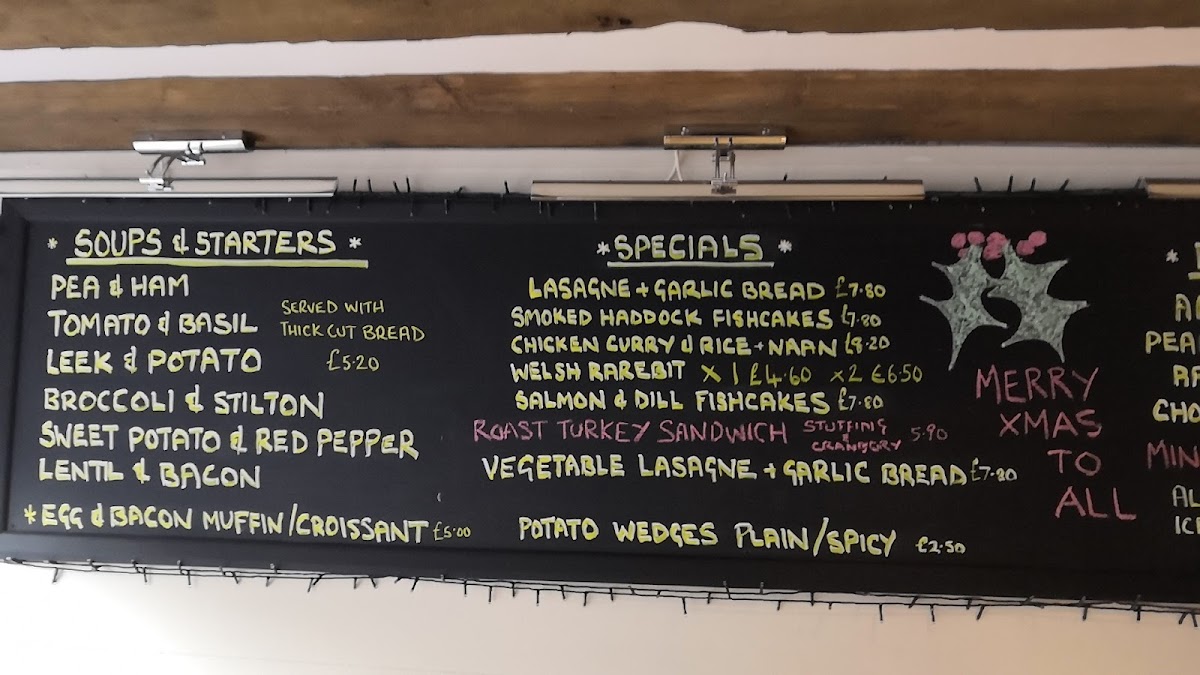 * SOUPS & STARTERS *
PEA & HAM
TOMATO & BASIL
LEEK & POTATO
BROCCOLI & STILTON
SWEET POTATO & RED PEPPER
LENTIL & BACON
SERVED WITH
THICK CUT BREAD
£5.20
* EGG & BACON MUFFIN/CROISSANT £5.00
* SPECIALS *
LASAGNE + GARLIC BREAD £7.80
SMOKED HADDOCK FISHCAKES £7.80
CHICKEN CURRY & RICE + NAAN £8.20
WELSH RAREBIT X 1 £4.60 X2 £6.50
SALMON & DILL FISHCAKES £7.80
ROAST TURKEY SANDWICH STUFFING & CRANBERY 5.90
VEGETABLE LASAGNE + GARLIC BREAD £7.80
POTATO WEDGES PLAIN/SPICY £2.50
MERRY
XMAS
TO
ALL
*
PEA
CHO
MIN
AL
ICE